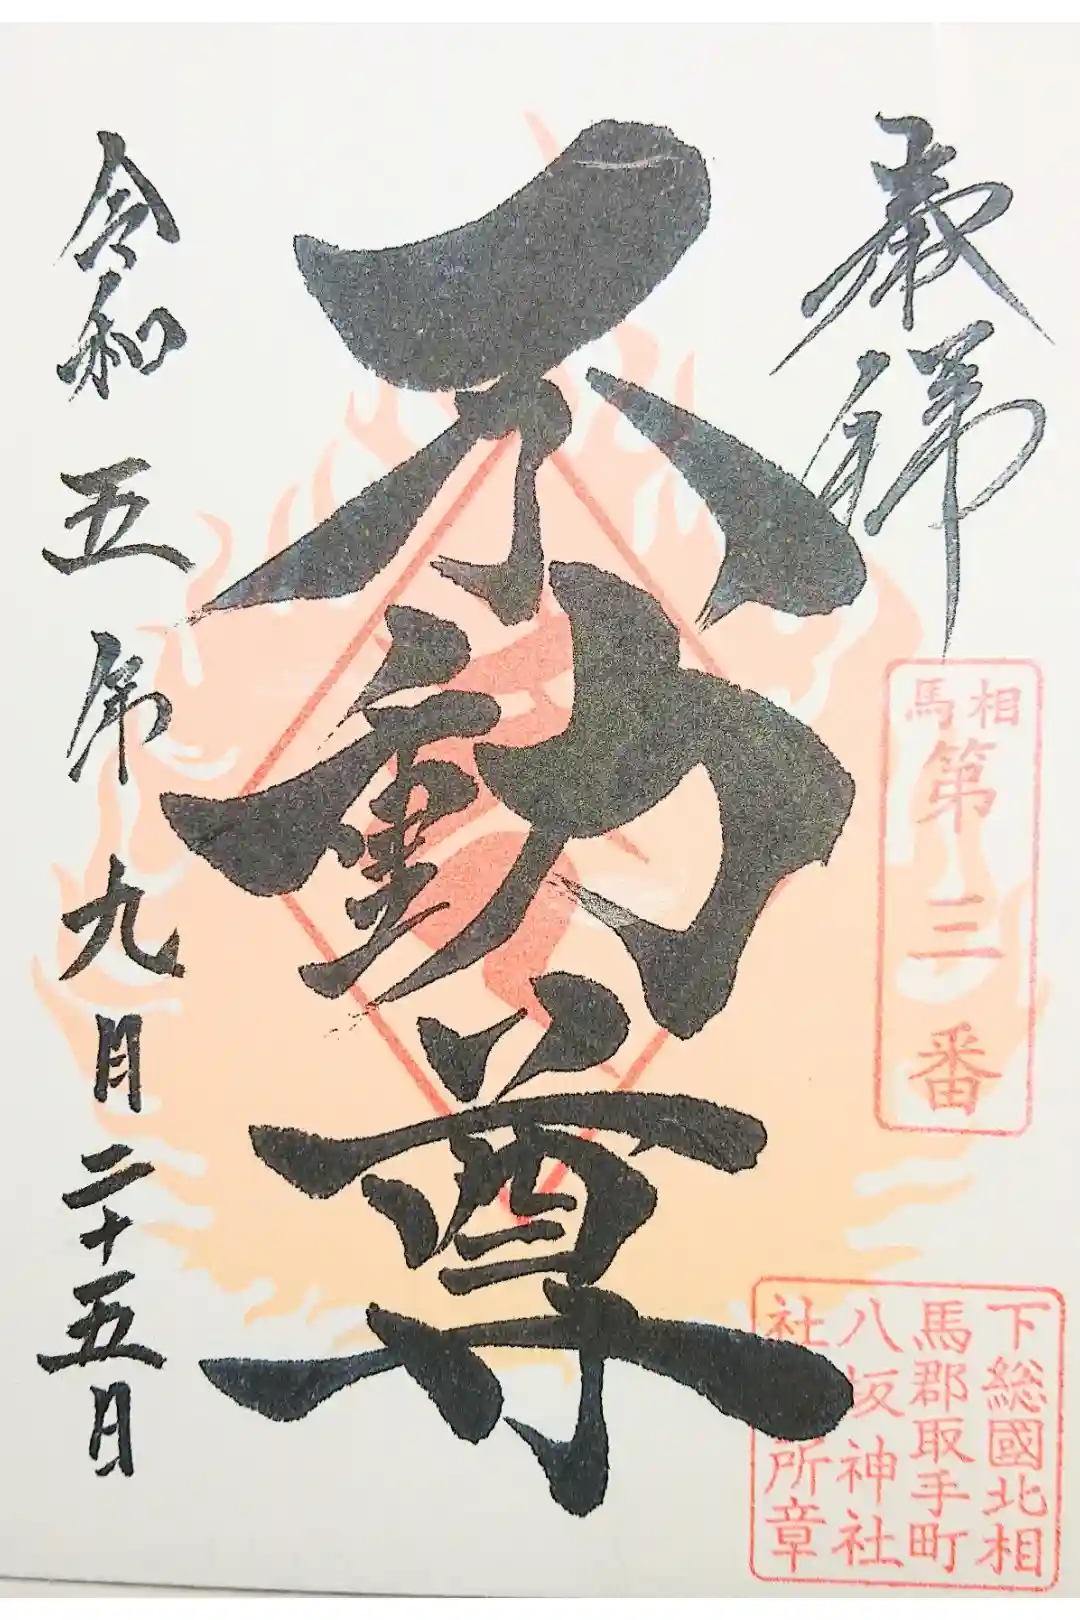 奉拝
相馬
第三番
不動尊
下総國北相
馬郡取手町
八坂神社
社
所章
令和五年九月二十五日